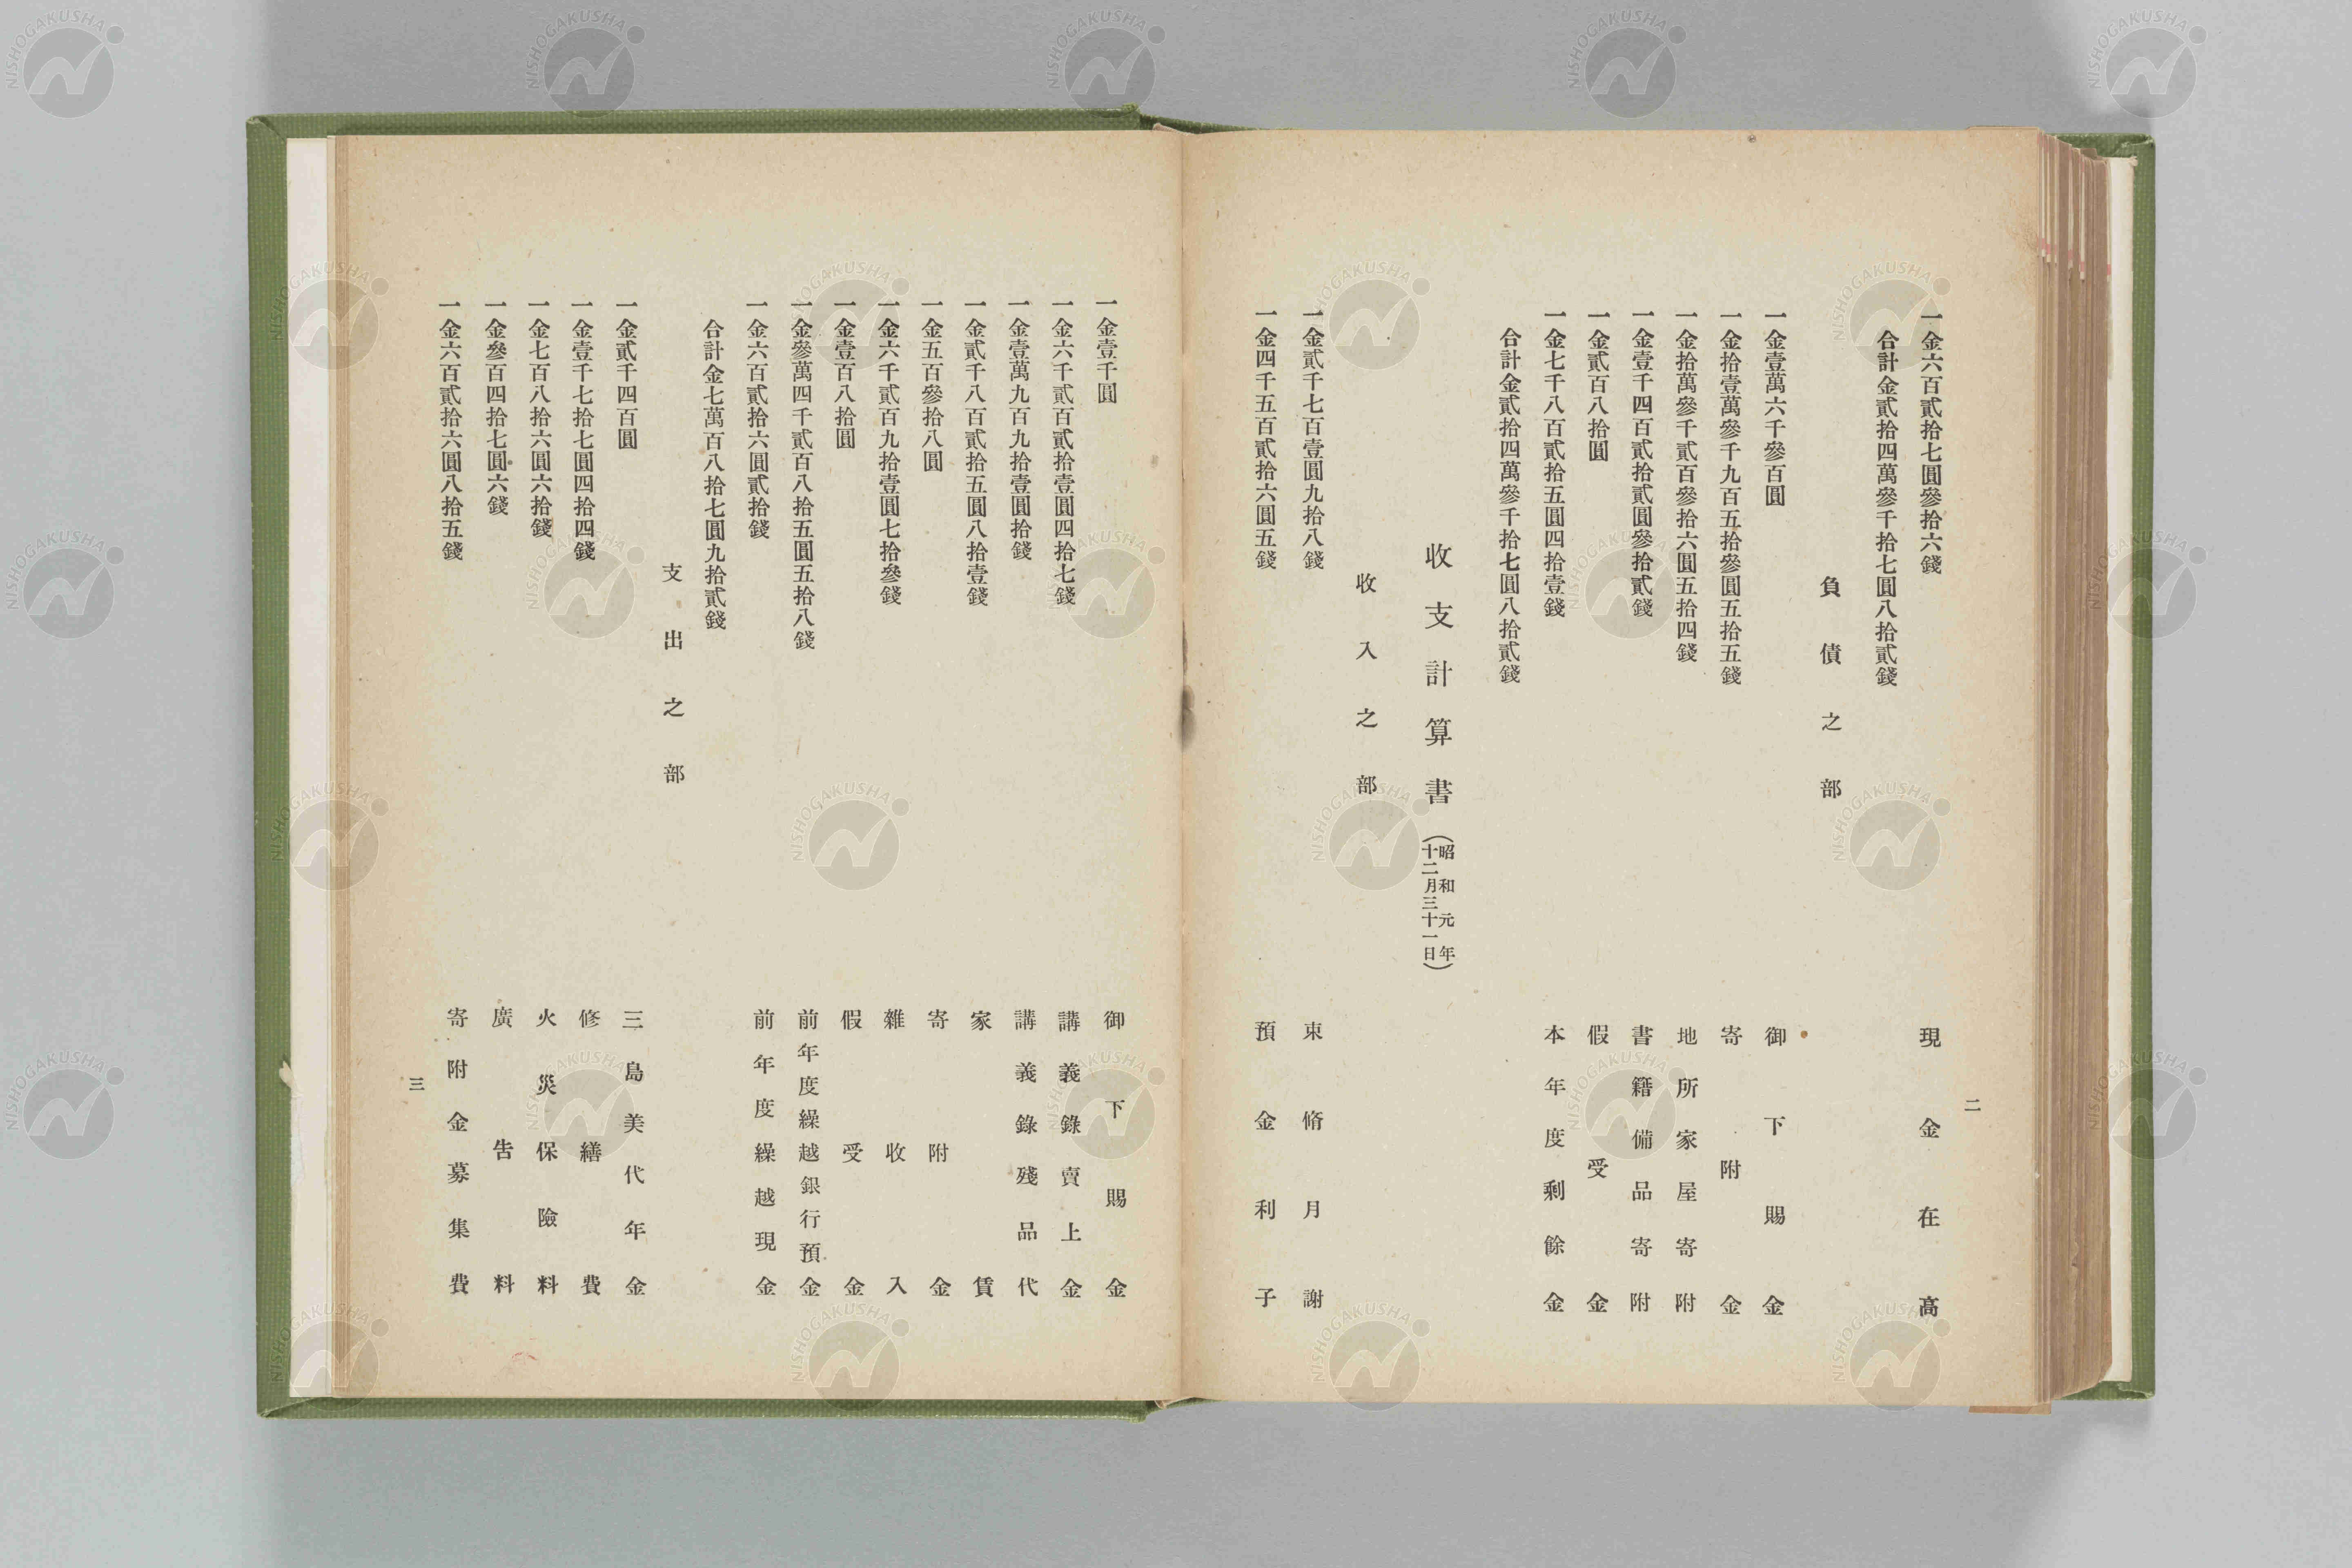 二
一金六百貳拾七圓參拾六錢 現金在高
合計金貳拾四萬參千拾七圓八拾貳錢
負債之部
一金壹萬六千參百圓 御下賜金
一金拾壹萬參千九百五拾參圓五拾五錢 寄附金
一金拾萬參千貳百參拾六圓五拾四錢 地所家屋寄附
一金壹千四百貳拾貳圓參拾貳錢 書籍備品寄附
一金貳百八拾圓 假受金
一金七千八百貳拾五圓四拾壹錢 本年度剩餘金
合計金貳拾四萬參千拾七圓八拾貳錢
收支計算書(昭和元年十二月三十一日)
收入之部
一金貳千七百壹圓九拾八錢 束脩月謝
一金四千五百貳拾六圓五錢 預金利子
一金壹千圓 御下賜金
一金六千貳百貳拾壹圓四拾七錢 講義錄賣上金
一金壹萬九百九拾壹圓拾錢 講義錄殘品代
一金貳千八百貳拾五圓八拾壹錢 家賃
一金五百參拾八圓 寄附金
一金六千貳百九拾壹圓七拾參錢 雜收入
一金壹百八拾圓 假受金
一金參萬四千貳百八拾五圓五拾八錢 前年度繰越銀行預金
一金六百貳拾六圓貳拾錢 前年度繰越現金
合計金七萬百八拾七圓九拾貳錢
支出之部
一金貳千四百圓 三島美代年金
一金壹千七拾七圓四拾四錢 修繕費
一金七百八拾六圓六拾錢 火災保險料
一金參百四拾七圓六錢 廣告料
一金六百貳拾六圓八拾五錢 寄附金募集費
三
NISHOGAKUSHA